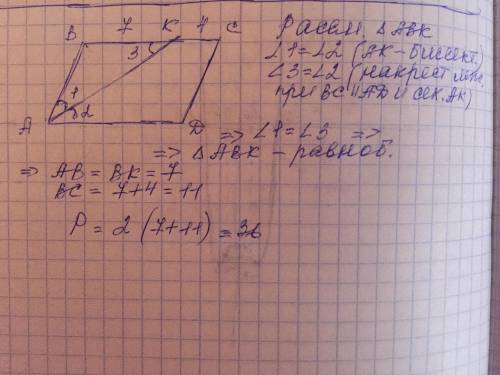 B 7 K 4 C
3
1
2
A
D
Рассм. ΔABK
∠1=∠2 (AK-биссект.
∠3=∠2 (накрест леж.
при BC ∥ AD и сек. AK)
=> ∠1=∠3 =>
=> ΔABK - равноб.
=> AB = BK = 7
BC = 7+4 = 11
P = 2 (7+11) = 36